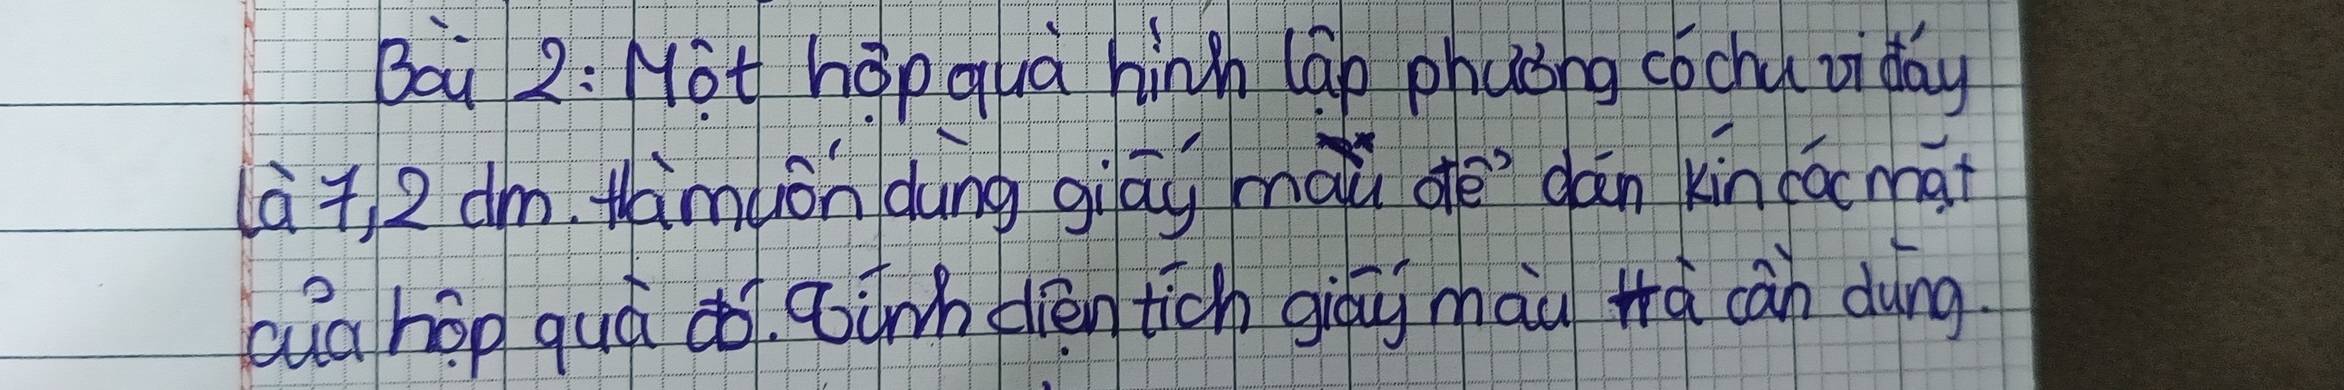 Bài 2: Một hộp quà hình lập phương có chu vi đáy
là 7,2 dm. Hà muốn dùng giấy màu để dán kín các mặt
của hộp quà đó. Tính diện tích giấy màu Hà cần dùng.